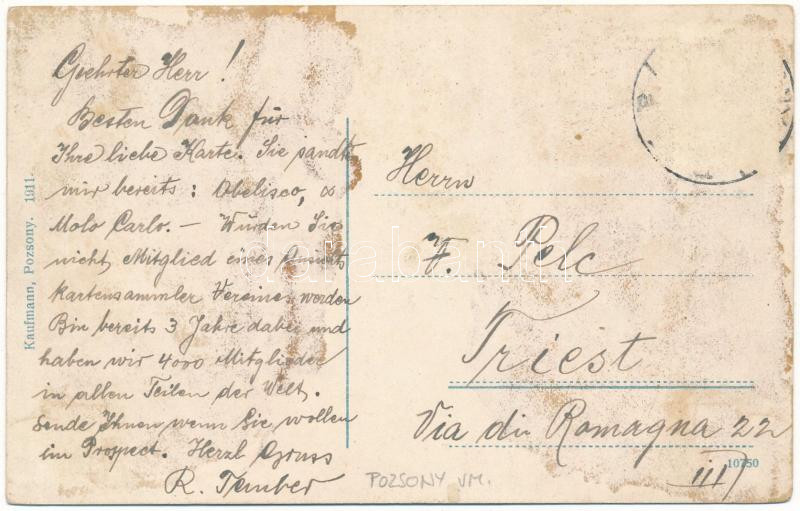 Geehrter Herr!
Besten Dank für
Ihre liebe Karte. Sie sandte
mir bereits: Obelisco,
Molo Carlo. — Würden Sie
nicht Mitglied eines Ansichts
kartensammler Vereines werden
Bin bereits 3 Jahre dabei und
haben wir 4000 Mitglieder
in allen Teilen der Welt.
Sende Ihnen wenn Sie wollen
im Prospect. Herzl Gruss
R. Tember
Kaufmann, Pozsony. 1911.
Herrn
F. Pelc
Triest
Via di Romagna 22
III
10750
POZSONY VM.
darabanth